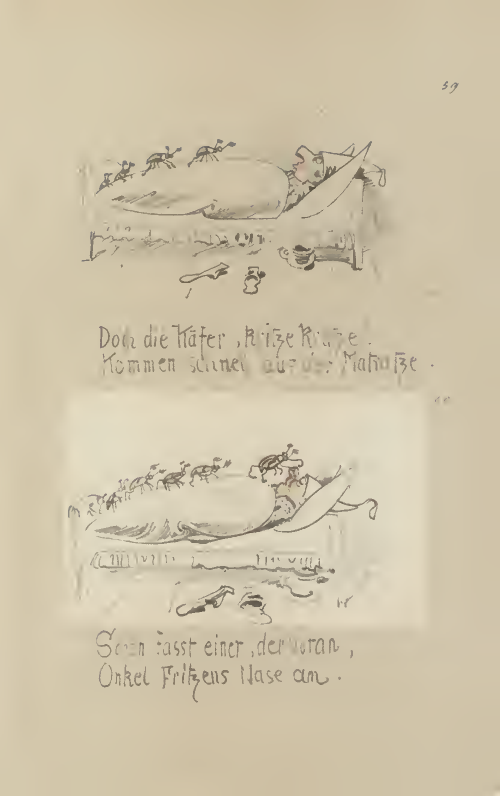 59
Doch die Käfer, Kritze Kratze.
Kommen schnell aus der Matratze.
Schon fasst einer, der voran,
Onkel Fritzens Nase an.